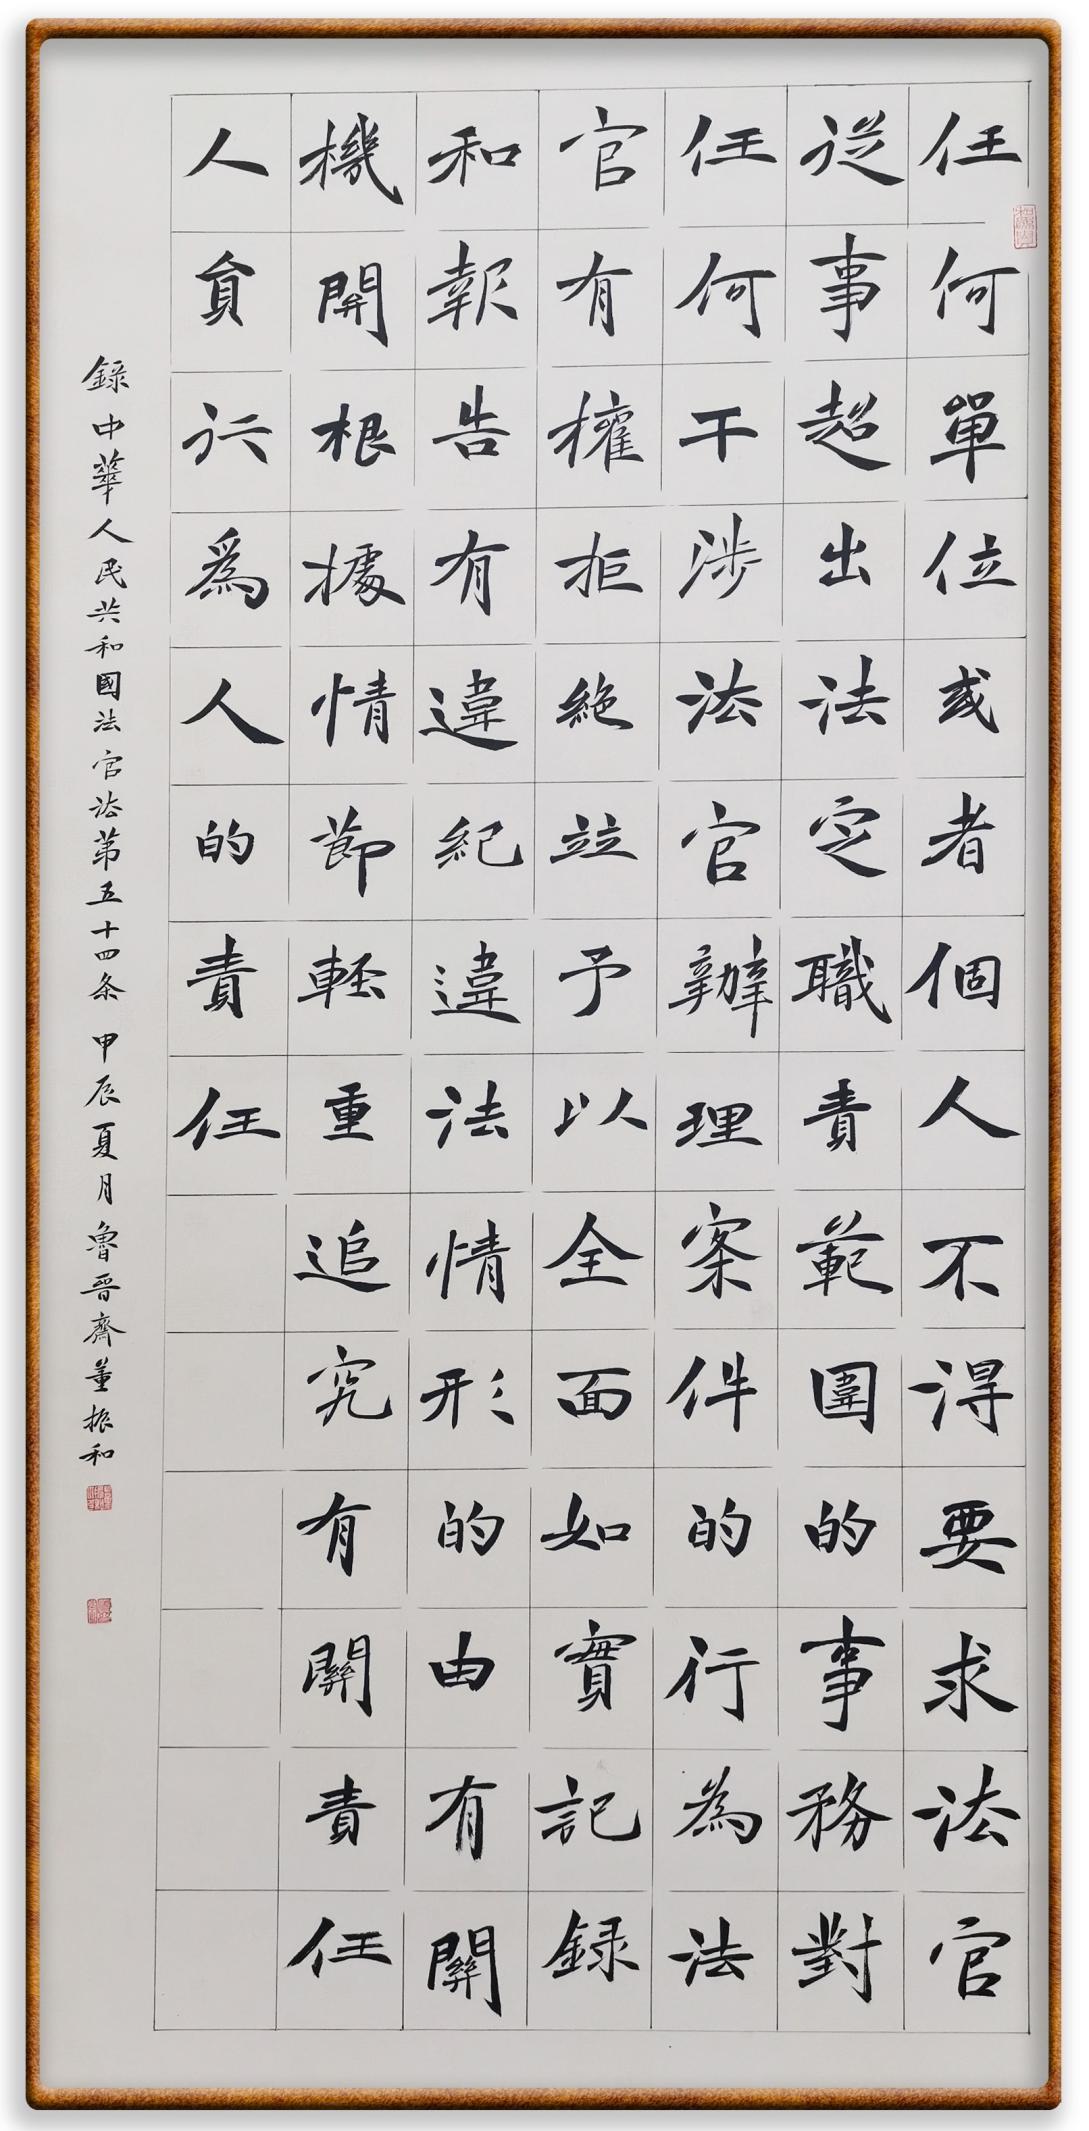 任何單位或者個人不得要求法官
從事超出法定職責範圍的事務對
任何干涉法官辦理案件的行為法
官有權拒絕並予以全面如實記錄
和報告有違紀違法情形的由有關
機關根據情節輕重追究有關責任
人員行為人的責任
錄中華人民共和國法官法第五十四条 甲辰夏月魯晉齋董振和